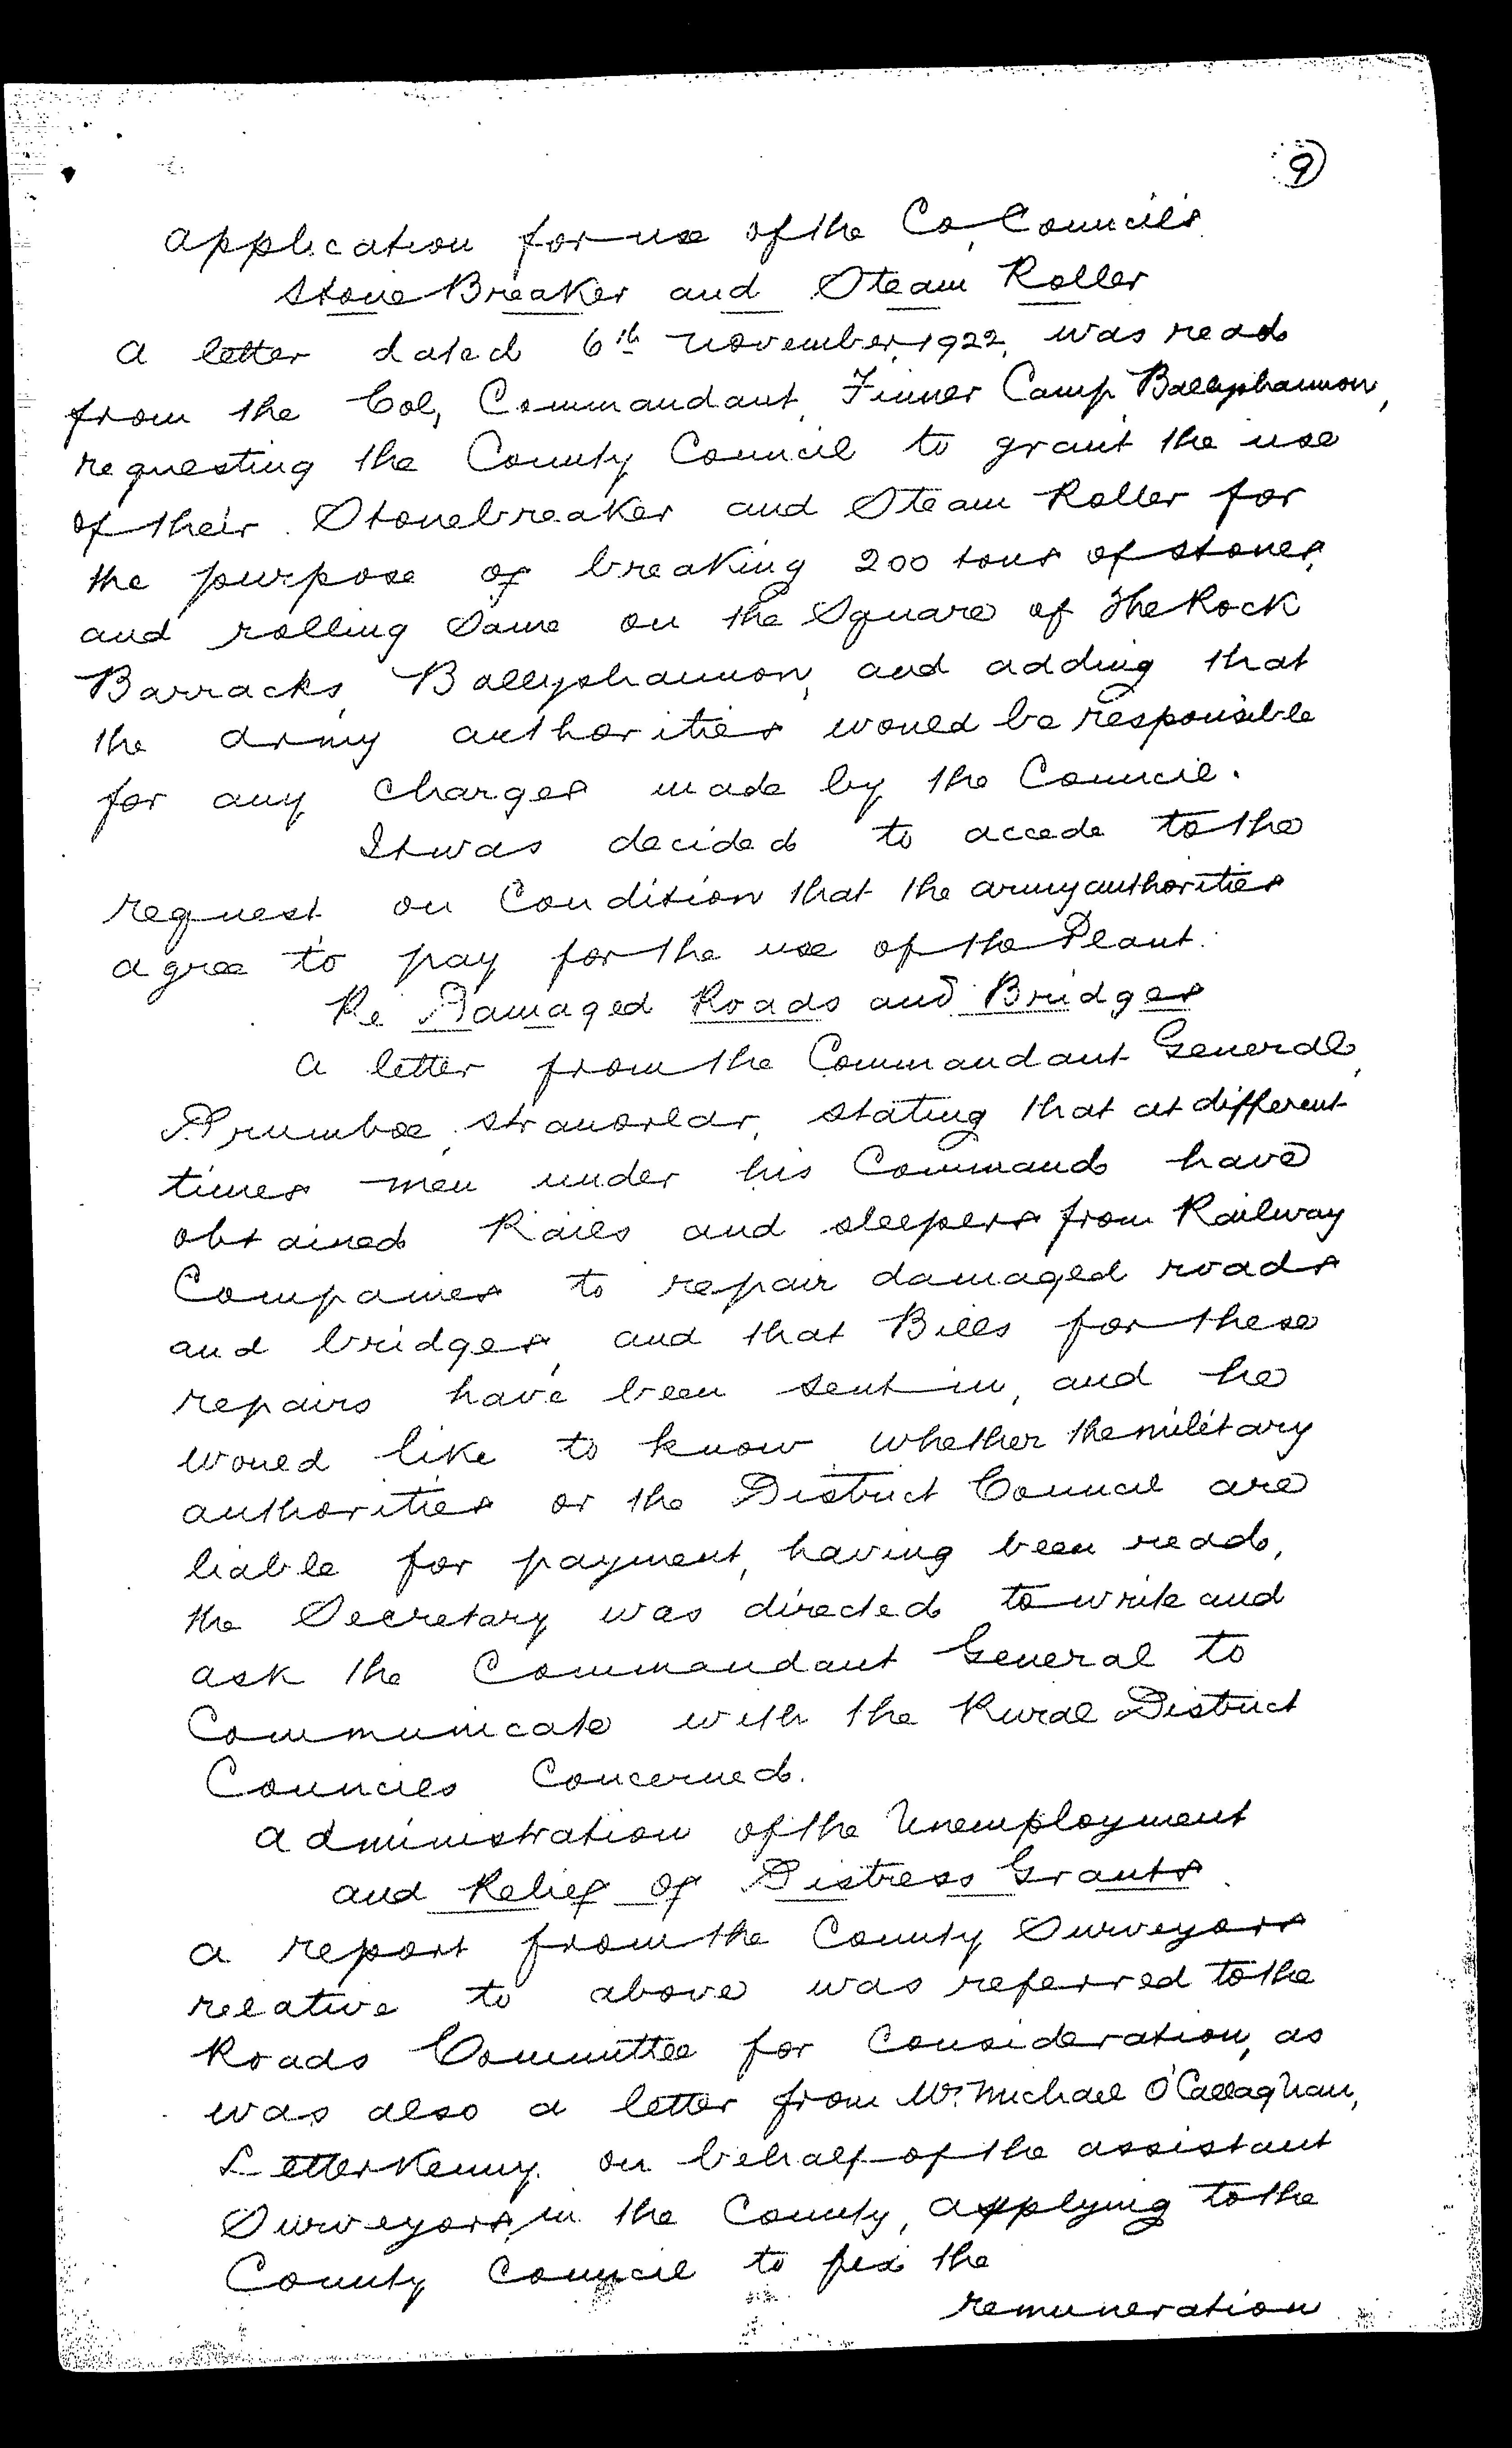 9
Application for use of the Co, Council's
Stone Breaker and Steam Roller
A letter dated 6th November, 1922, was read
from the Col, Commandant, Finner Camp, Ballyshannon,
requesting the County Council to grant the use
of their Stonebreaker and Steam Roller for
the purpose of breaking 200 tons of stones,
and rolling same on the Square of The Rock
Barracks, Ballyshannon, and adding that
the army authorities would be responsible
for any charges made by the Council.
It was decided to accede to the
request on condition that the army authorities
agree to pay for the use of the Plant.
Re Damaged Roads and Bridges
A letter from the Commandant General,
Drumboe, Stranorlar, stating that at different
times men under his Command have
obtained Rails and sleepers from Railway
Companies to repair damaged roads
and bridges, and that Bills for these
repairs have been sent in, and he
would like to know whether the military
authorities or the District Council are
liable for payment, having been read,
the Secretary was directed to write and
ask the Commandant General to
Communicate with the Rural District
Councils concerned.
Administration of the Unemployment
and Relief of Distress Grants.
A report from the County Surveyors
relative to above was referred to the
Roads Committee for consideration, as
was also a letter from Mr. Michael O'Callaghan,
Letterkenny on behalf of the assistant
Surveyors, in the County, applying to the
County Council to fix the
remuneration